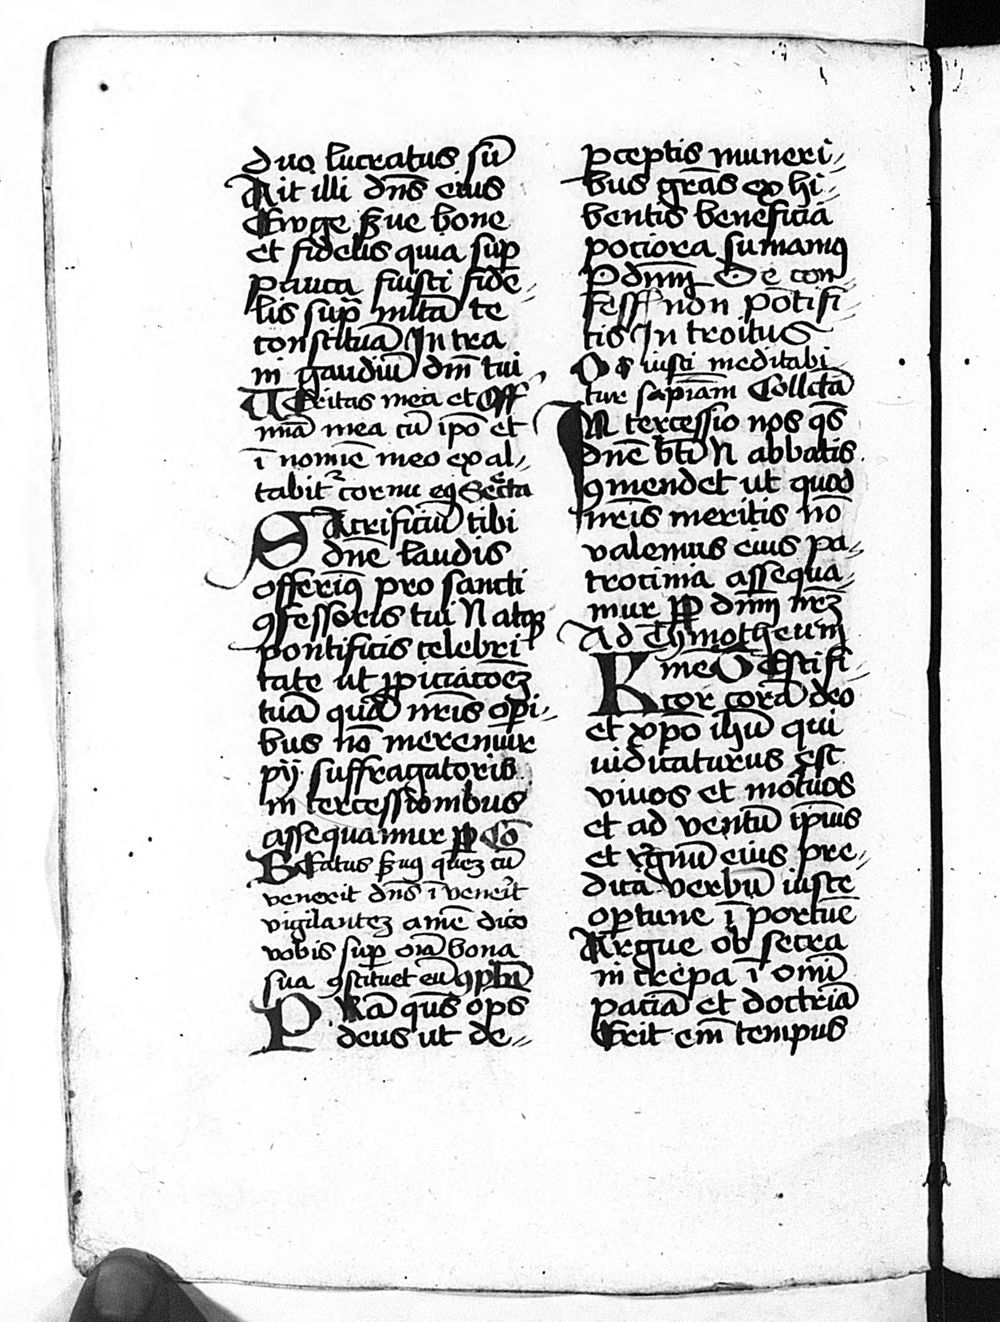 duo lucratus sū
Ait illi dn̄s eius
Ewge s̄ue bone
et fidelis quia suꝑ
pauca fuisti fide⸗
lis suꝑ ml̄ta te
constituā Intra
in gaudiū dn̄i tui
Ueritas mea et Off̄
mīa mea cū ip̄o et
ī noīe meo exal⸗
tabit᷑ cornu eiꝰ Secͣta
SAcrificiū tibi
dn̄e laudis
offerimꝰ pro sancti
ꝯfessoris tui N atqꝫ
pontificis celebri
tate ut ꝓpiciacōeꝫ
tuā quā nr̄is opi⸗
bus nō meremur
pij suffragatoris
intercessionibus
assequamur ꝑ Cō
Beatus s̄uꝰ queꝫ cū
venerit dn̄s ī ven̄it
vigilanteꝫ amē dico
vobis suꝑ oīa bona
sua ꝯstituet eū ꝯpl̄
PRā qūs ops
deus ut de⸗
ꝑceptis muneri⸗
bus gr̄as exhi⸗
bentis beneficia
pociora sumamꝰ
P dn̄m De con
fess̄ non pōtifi⸗
cis Introitus
Os iusti meditabi
tur sapīam Collcā
INtercessio nos qs̄
dn̄e bt̄i N abbatis
ꝯmendet ut quod
nr̄is meritis nō
valemus eius pa⸗
trocinia assequa⸗
mur ꝑ dn̄m nr̄ꝫ
Ad Thymotheum
Kme Testifi
cor corā deo
et xp̄o ih̄u qui
iudicaturus est
vivos et mōtuos
et ad ventū ip̄ius
et rꝭgnū eius pre⸗
dica verbū iuste
oportune īportūe
Argue obsecra
increpa ī omī
paciā et doctr̄ia
Erit em̄ tempus